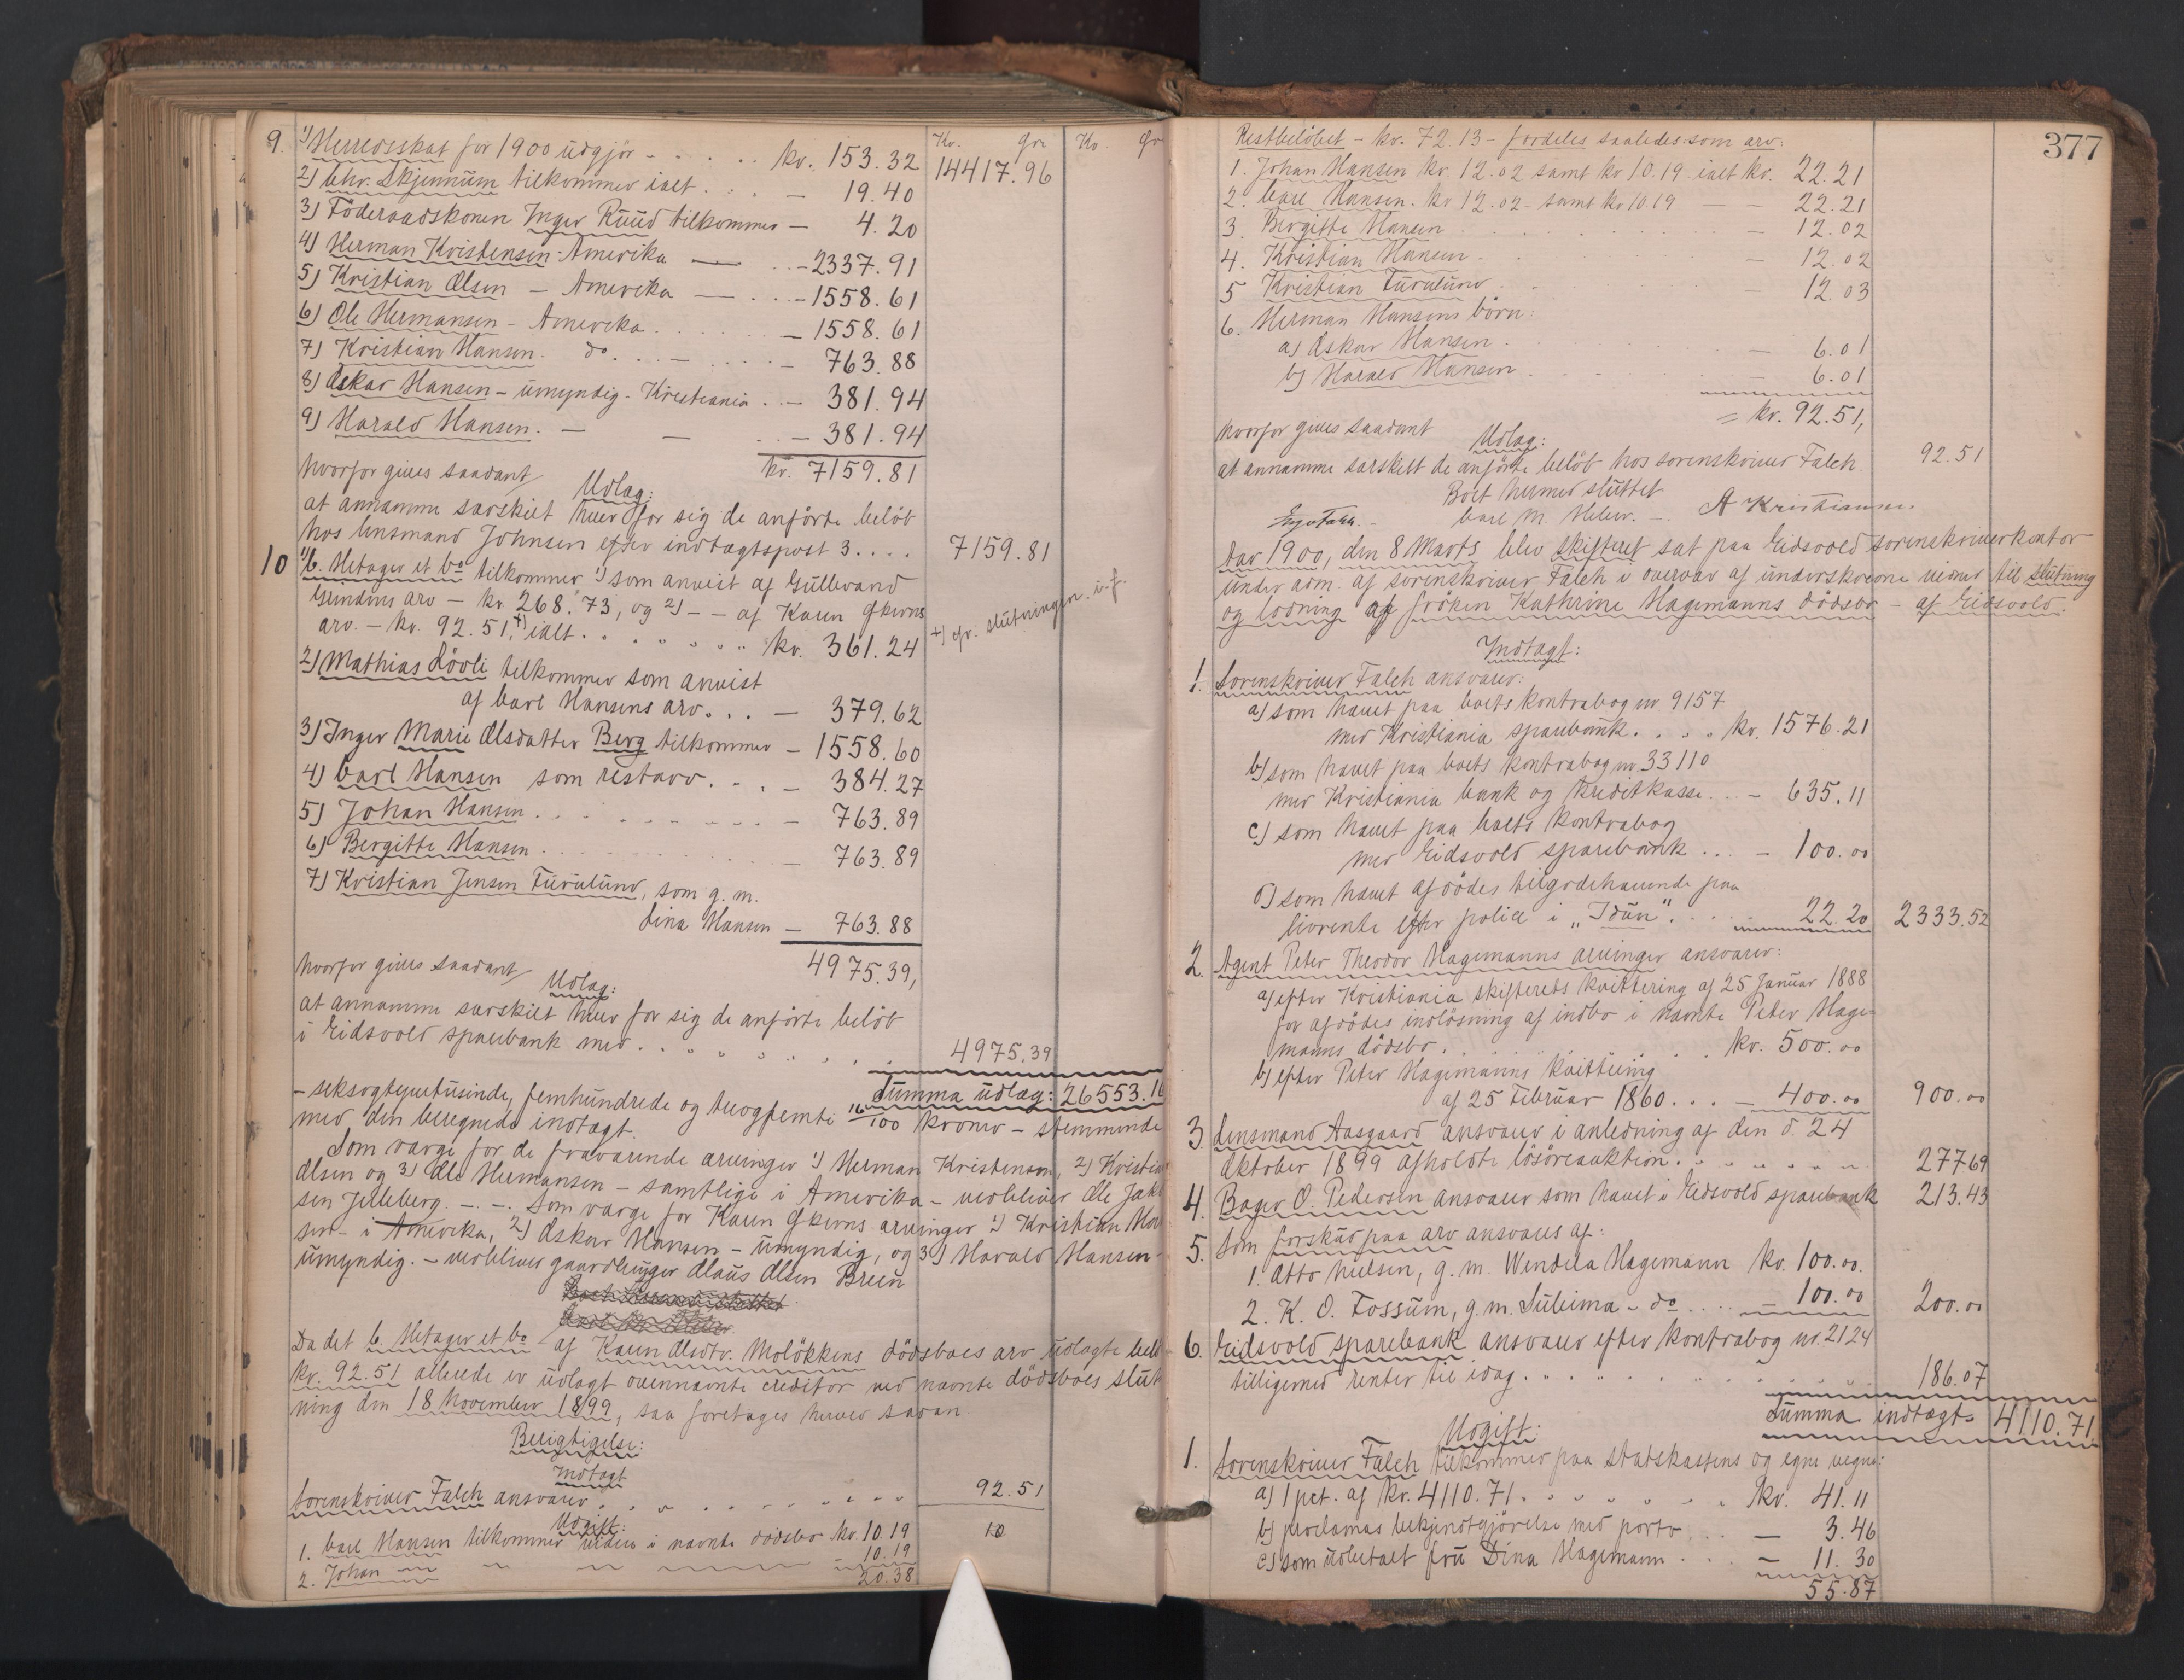 Kr. Ør. Kr. Ør
9. 1) Herredsskat for 1900 udgjör - . . . . kr. 153.32 14417.96
2) Chr. Skjennum tilkommer ialt . . . — 19.40
3) Föderaadskonen Inger Ruud tilkommer — 4.20
4) Herman Kristensen - Amerika — . . - 2337.91
5) Kristian Olsen - Amerika — . . - 1558.61
6) Ole Hermansen - Amerika . . . . . — 1558.61
7) Kristian Hansen. do. . . - . . . — 763.88
8) Oskar Hansen - umyndig - Kristiania . . — 381.94
9) Harald Hansen. — — . . — 381.94
hvorfor gives saadant kr. 7159.81
Udlæg:
at annamme særskilt hver for sig de anförte belöb
hos lensmand Johnsen efter indtægtspost 3 . . . . 7159.81
10 1) C. Hetager et Co tilkommer 1) som anvist af Gullerand
Gundens arv - kr. 268.73, og 2) - - af Karen
arv. - kr. 92.51, +) ialt . . . . . . kr. 361.24 +) cfr. slutningen. i.f.
2) Mathias Lövli tilkommer som anvist
af Carl Hansens arv . . . — 379.62
3) Inger Marie Olsdatter Berg tilkommer — 1558.60
4) Carl Hansen som restarv . . . — 384.27
5) Johan Hansen . . . . . . . . . — 763.89
6) Bergitte Hansen . . . . . . . . — 763.89
7) Kristian Jensen Furulund, som g. m.
Dina Hansen — 763.88
hvorfor gives saadant 4975.39,
Udlæg:
at annamme særskilt hver for sig de anförte belöb
i Eidsvold sparebank med . . . . . . . . 4975.39
Summa udlæg: 26553.16
- seksogtyvetusinde, femhundrede og treogfemti 16/100 kroner - stemmende
med den beregnede indtægt.
Som værge for de fraværende arvinger 1) Herman Kristensen, 2) Kristian
Olsen og 3) Ole Hermansen - samtlige i Amerika - verbliver Ole Jak
sen Jelleberg. -. -. Som værge for Karen arvinger 1) Kristian Han
sen - i Amerika, 2) Oskar Hansen - umyndig, og 3) Harald Hansen -
umyndig. - verbliver gaardbruger Olaus Olsen Breen
Da det C. Hetager et Co af Karen Olsdtr. Molökkens dödsboes arv udlagte belö
kr. 92.51 allerede er udlagt ovennævnte creditor ved nævnte dödsboes slut
ning den 18 November 1899, saa foretages herved saadan
Berigtigelse:
Indtægt
Sorenskriver Falch ansvarer . . . . . . . . . . 92.51
Udgift:
1. Carl Hansen tilkommer videre i nævnte dödsbo kr. 10.19 10
2. Johan — — — — — 10.19
20.38
377
Restbelöbet - kr. 72.13 - fordeles saaledes som arv:
1. Johan Hansen kr. 12.02 samt kr 10.19 ialt kr. 22.21
2. Carl Hansen. kr 12.02 - samt kr 10.19 — — 22.21
3. Bergitte Hansen . . . . . . . . — 12.02
4. Kristian Hansen - . . . . . . — 12.02
5 Kristian Furulund . . . . . . — 12.03
6. Herman Hansens börn:
a) Oskar Hansen . . . . . . — 6.01
b) Harald Hansen . . . . . . — 6.01
= kr. 92.51,
hvorfor gives saadant
Udlæg:
at annamme særskilt de anförte belöb hos sorenskriver Falch 92.51
Boet hermed sluttet
Carl M. Helier. -. A Kristiansen.
Aar 1900, den 8 Marts blev skifteret sat paa Eidsvold sorenskriverkontor
under adm. af sorenskriver Falch i overvær af underskrevne vidner til slutning
og lodning af fröken Kathrine Hagemanns dödsbo - af Eidsvold.
Indtægt:
1. Sorenskriver Falch ansvarer:
a) som hævet paa boets kontrabog nr 9157
med Kristiania sparebank . . . . kr. 1576.21
b) som hævet paa boets kontrabog nr. 33110
med Kristiania bank og kreditkasse . . . - 635.11
c) som hævet paa boets kontrabog
med Eidsvold sparebank . . . - 100.00
d) som hævet afdödes tilgodehavende paa
livrente efter police i „Idun“ . . . . . 22.20 2333.52
2. Agent Peter Theodor Hagemanns arvinger ansvarer:
a) efter Kristiania skifterets kvittering af 25 Januar 1888
for afdödes indlösning af indbo i nævnte Peter Hage-
manns dödsbo . . . . . . . . . . kr. 500.00
b) efter Peter Hagemanns kvittering
af 25 Februar 1860 . . . — 400.00 900.00
3 Lensmand Aasgaard ansvarer i anledning af den d. 24
Oktober 1899 afholdte lösöreauktion . . . . . . . 277.69
4. Bager O. Pedersen ansvarer som hævet i Eidsvold sparebank 213.43
5. Som forskud paa arv ansvares af:
1. Otto Nielsen, g. m. Wendela Hagemann kr. 100.00.
2. K. O. Fossum, g. m. Sulima - do . . . . — 100.00 200.00
6. Eidsvold sparebank ansvarer efter kontrabog nr. 2124
tilligemed renter til idag . . . . . . . . . . 186.07
Summa indtægt: 4110.71
Udgift:
1. Sorenskriver Falch tilkommer paa statskassens og egne vegne:
a) 1 pct. af kr. 4110.71 . . . . . . . kr. 41.11
b) proclamas bekjendtgjörelse med porto . . . — 3.46
c) som udbetalt fru Dina Hagemann . . . — 11.30
55.87